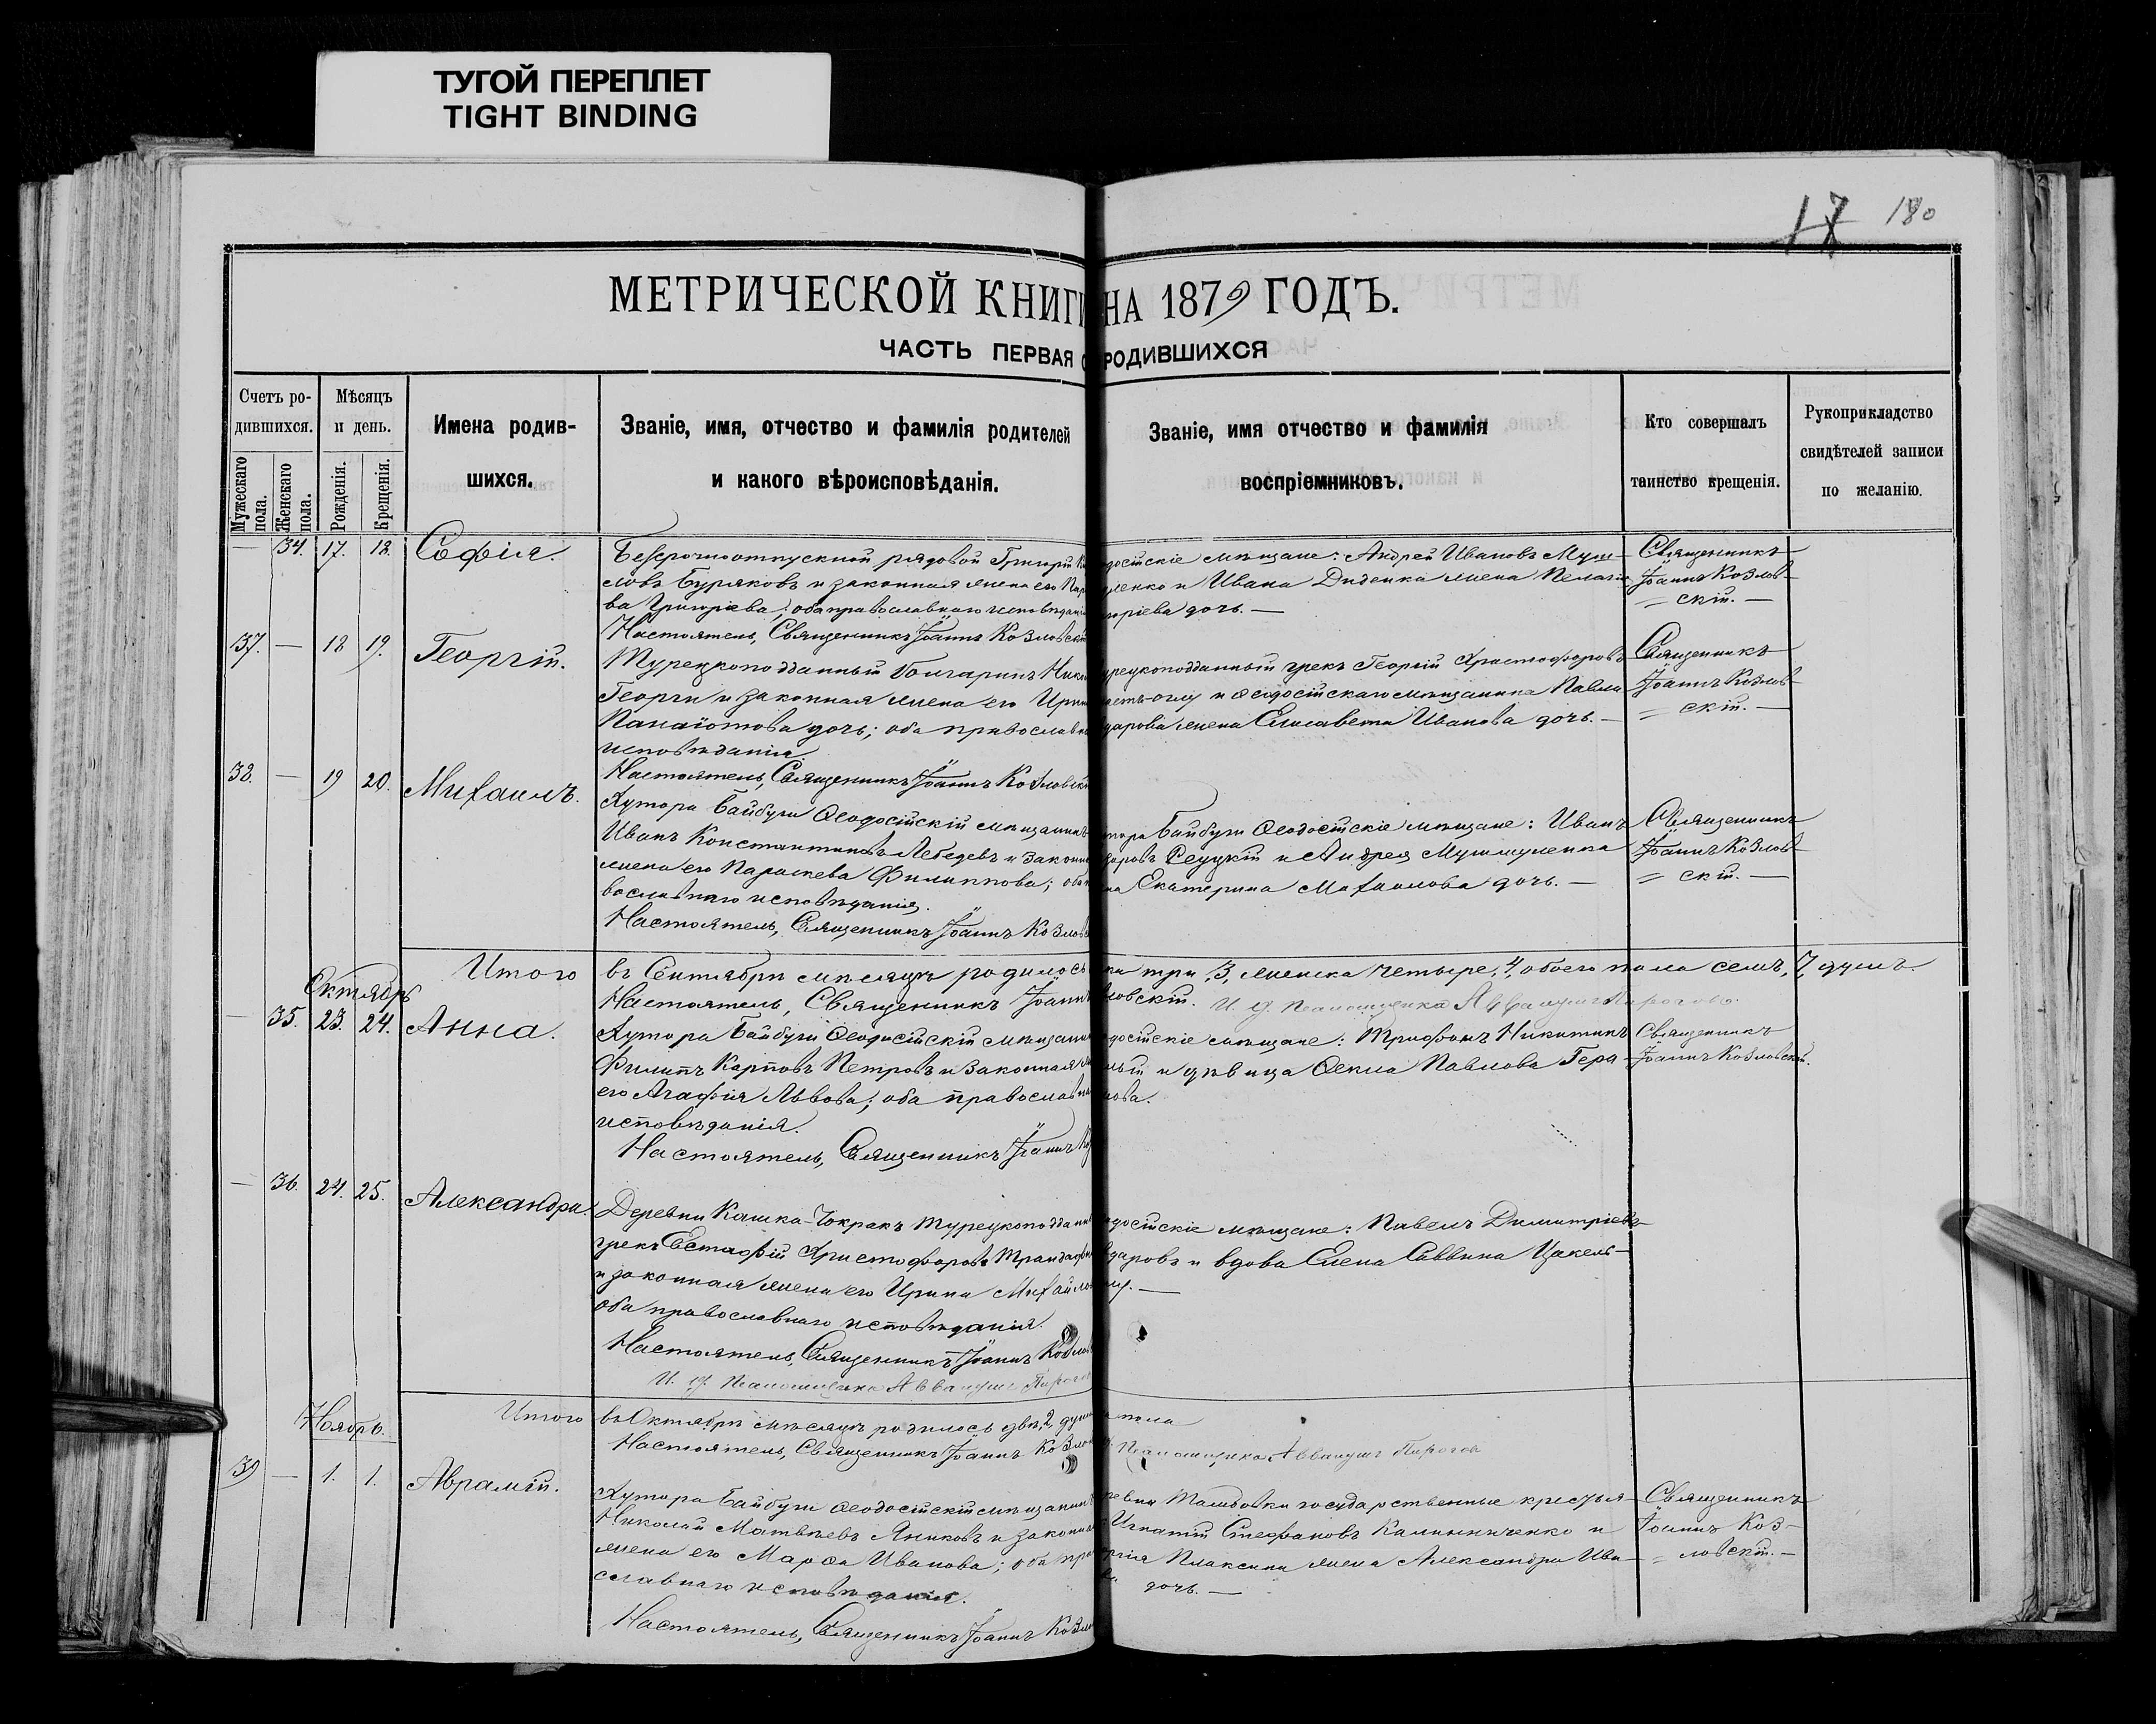 ТУГОЙ ПЕРЕПЛЕТ
TIGHT BINDING
17 180
МЕТРИЧЕСКОЙ КНИГИ НА 1879 ГОДЪ.
ЧАСТЬ ПЕРВАЯ О РОДИВШИХСЯ
Счетъ ро-
дившихся.
Мужескаго
пола.
Женскаго
пола.
Мѣсяцъ
и день.
Рожденія.
Крещенія.
Имена родив-
шихся.
Званіе, имя, отчество и фамилія родителей
и какого вѣроисповѣданія.
Званіе, имя отчество и фамилія
воспріемниковъ.
Кто совершалъ
таинство крещенія.
Рукоприкладство
свидѣтелей записи
по желанію.
— 34. 17. 18. Софія.
Безсрочноотпускной рядовой Григорій
словъ Буряковъ и законная жена его Пар
ва Григоріева; оба православнаго исповѣданія
Настоятель, Священникъ Іоаннъ Козловскій
досійскіе мѣщане: Андрей Ивановъ Муш-
ленко и Ивана Диденка жена Пелагія
горіева дочь. —
Священникъ
Іоаннъ Козлов-
= скій. —
37. — 18 19. Георгій.
Турецкоподданный Болгаринъ Никол
Георги и законная жена его Ирин
Панаіотова дочь; оба православн
исповѣданія.
Настоятель, Священникъ Іоаннъ Козловскій
урецкоподданный грекъ Георгій Христофоровъ
и Ѳеодосійскаго мѣщанина Павла
дарова жена Елисавета Иванова дочь. —
Священникъ
Іоаннъ Козлов-
= скій. —
38. — 19 20. Михаилъ.
Хутора Байбуги Ѳеодосійскій мѣщанинъ
Иванъ Константиновъ Лебедевъ и законн
жена его Параскева Филиппова; оба
вославнаго исповѣданія.
Настоятель, Священникъ Іоаннъ Козлов
тора Байбуги Ѳеодосійскіе мѣщане: Иванъ
даровъ Сеуцкій и Андрея Мушмуленка
на Екатерина Михаилова дочь. —
Священникъ
Іоаннъ Козлов-
= скій. —
Итого въ Сентябрѣ мѣсяцѣ родилось ка три, 3, женска четыре, 4, обоего пола семь, 7, душъ.
Настоятель, Священникъ Іоаннъ ловскій. И. д. Псаломщика Пирогово.
Октябрь
— 35. 23. 24. Анна.
Хутора Байбуги Ѳеодосійскій мѣщанин
Филиппъ Карповъ Петровъ и законная ж
его Агафія Львова; оба православна
исповѣданія.
Настоятель, Священникъ Іоаннъ Ко
одосійскіе мѣщане: Трифонъ Никитинъ
ный и дѣвица Ѳекла Павлова Гера-
мова.
Священникъ
Іоаннъ Козловскій.
— 36. 24. 25. Александра.
Деревни Кашка-Чокракъ турецкоподдан
грекъ Естафій Христофоровъ Трандафи
и законная жена его Ирина Михайлов
оба православнаго исповѣданія.
Настоятель, Священникъ Іоаннъ Козлов
И. д. Псаломщика Пирогов
одосійскіе мѣщане: Павелъ Димитріевъ
ндаровъ и вдова Елена Саввина Цакель-
Итого въ Октябрѣ мѣсяцѣ родилось двѣ, 2, души пола
Настоятель, Священникъ Іоаннъ Козлов Псаломщика Пирогов
Ноябрь.
39 — 1. 1. Аврамій.
Хутора Байбуги Ѳеодосійскій мѣщанинъ
Николай Матвѣевъ Яниковъ и законн
жена его Марѳа Иванова; оба пра
славнаго исповѣданія.
Настоятель, Священникъ Іоаннъ Козлов
ревни государственные крестья-
Игнатій Стефановъ Калиниченко и
ргія Плаксина жена Александра Ива-
дочь. —
Священникъ
Іоаннъ Коз-
= ловскій. —